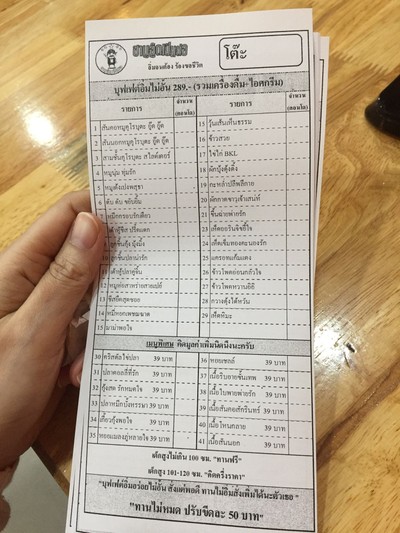 อิ่มจนต้อง ร้องขอชีวิต
โต๊ะ
บุฟเฟ่ต์อิ่มไม่อั้น 289.- (รวมเครื่องดื่ม-ไอศกรีม)
รายการ จำนวน รายการ จำนวน
1 สันคอหมูคุโรบุตะ บู๊ต บู๊ต
2 สันนอกหมูคุโรบุตะ บู๊ต บู๊ต
3 สามชั้นคุโรบุตะ สไลด์เตอร์
4 หมูนุ่ม ทุ่มรัก
5 หมูเด้งเปงพสุธา
6 ตับ ตับ ขยับยิ้ม
หมึกกรอบรักเดียว
14 หมึกหอกเพชฌฆาต
15 มาม่าพอใจ
15 วุ้นเส้นเห็นธรรม
16 ข้าวสวย
17 ไข่ไก่ BKL
18 ผักบุ้งดุ้งดิ้ง
19 กะหล่ำปลีพลีกาย
20 ผักกาดขาวเจ้าเสน่ห์
21 ขึ้นฉ่ายพ่ายรัก
22 เห็ดออรินจิขยี้ใจ
23 เห็ดเข็มทองคะนองรัก
25 แครอทแก้มแดง
26 ข้าวโพดอ่อนกลัวใจ
27 ข้าวโพดหวานอิอิ
28 กวางตุ้งไต้หวัน
29 เห็ดหิมะ
เมนูพิเศษ คิดมูลค่าเพิ่มนิดนึงนะครับ
30 คริสตัลไข่ปลา 39 บาท
31 ปลาดอลลี่ที่รัก 39 บาท
32 กุ้งสด รักหมดใจ 39 บาท
33 ปลาหมึกบั้งหรรษา 39 บาท
34 เกี๊ยวกุ้งพอใจ 39 บาท
35 หอยแมลงภู่หลายใจ 39 บาท
36 หอยเชลล์ 39 บาท
37 39 บาท
38 เนื้อใบพายพ่ายรัก 39 บาท
39 เนื้อสันคอสักรินทร์ 39 บาท
40 เนื้อโหนกลาย 39 บาท
41 เนื้อสันนอก 39 บาท
เด็กสูงไม่เกิน 100 ซม. "ทานฟรี"
เด็กสูง 101-120 ซม. "คิดครึ่งราคา"
"บุฟเฟ่ต์อิ่มอร่อยไม่อั้น สั่งแต่พอดี ทานไม่อิ่มสั่งเพิ่มได้นะตัวเธอ"
"ทานไม่หมด ปรับขีดละ 50 บาท"